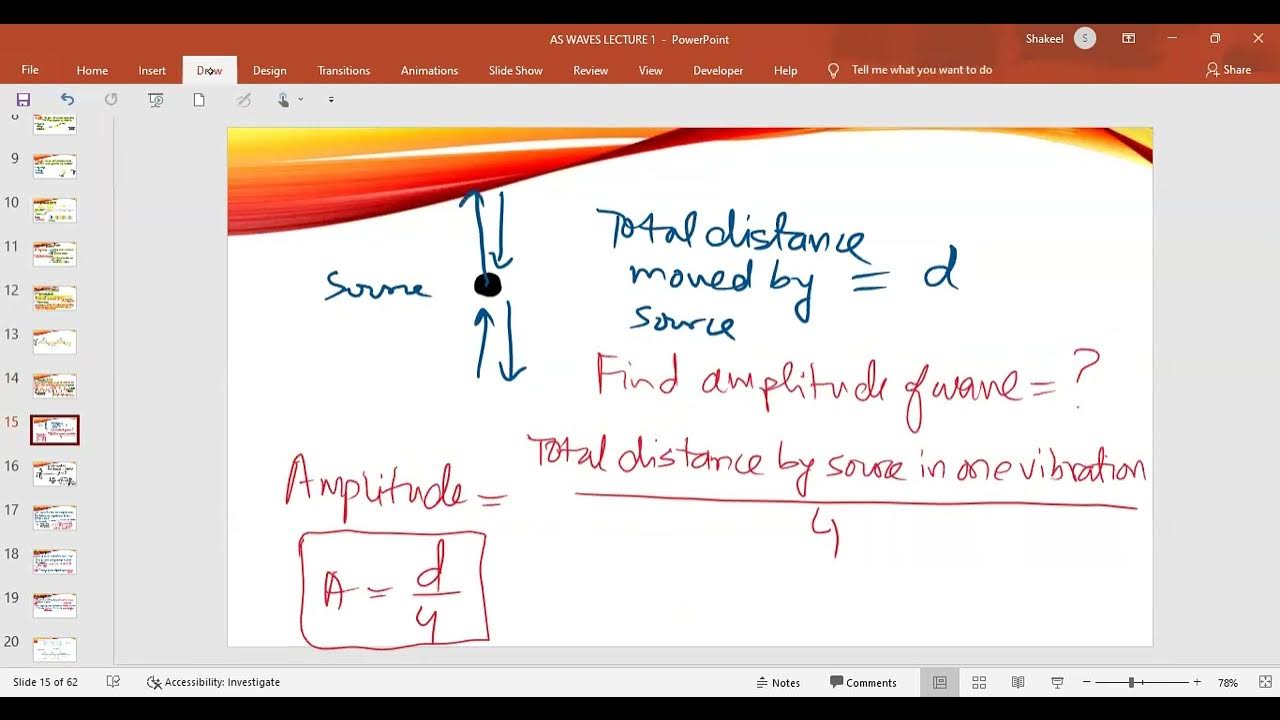 AS WAVES LECTURE 1 - PowerPoint
Shakeel
S
File Home Insert Draw Design Transitions Animations Slide Show Review View Developer Help Tell me what you want to do Share
9
10
11
12
13
14
15
16
17
18
19
20
Source
Total distance
moved by = d
source
Find amplitude of wave = ?
Amplitude = Total distance by source in one vibration
4
A = d
4
Slide 15 of 62 Accessibility: Investigate Notes Comments 78%